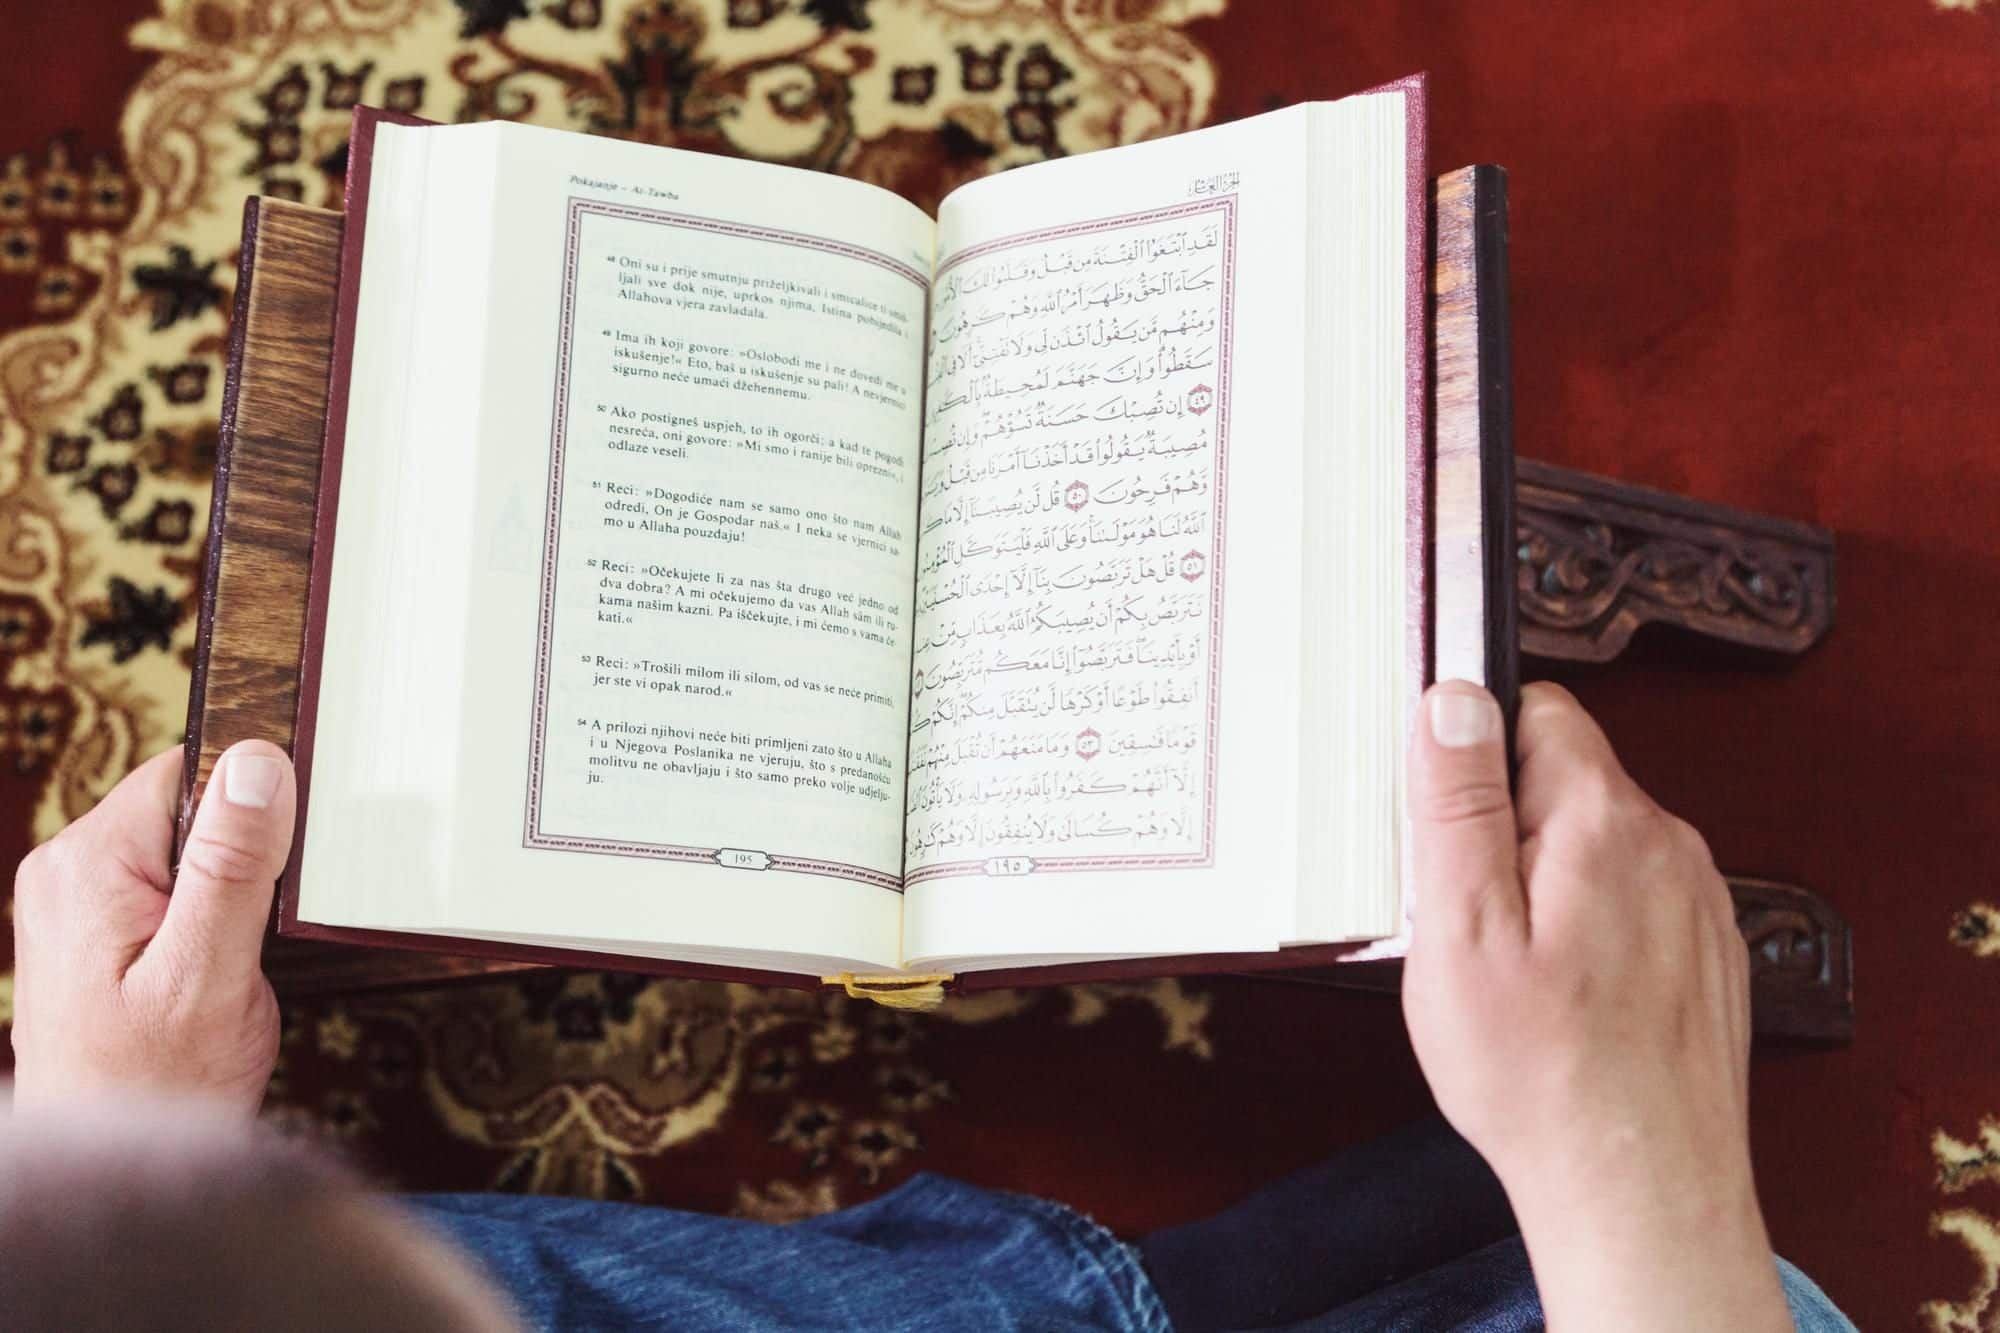 Pokajanje – At-Tawba
48 Oni su i prije smutnju priželjkivali i smicalice ti smiš-
ljali sve dok nije, uprkos njima, Istina pobijedila i
Allahova vjera zavladala.
49 Ima ih koji govore: »Oslobodi me i ne dovedi me u
iskušenje!« Eto, baš u iskušenje su pali! A nevjernici
sigurno neće umaći džehennemu.
50 Ako postigneš uspjeh, to ih ogorči; a kad te pogodi
nesreća, oni govore: »Mi smo i ranije bili oprezni«, i
odlaze veseli.
51 Reci: »Dogodiće nam se samo ono što nam Allah
odredi, On je Gospodar naš.« I neka se vjernici sa-
mo u Allaha pouzdaju!
52 Reci: »Očekujete li za nas šta drugo već jedno od
dva dobra? A mi očekujemo da vas Allah sâm ili ru-
kama našim kazni. Pa iščekujte, i mi ćemo s vama če-
kati.«
53 Reci: »Trošili milom ili silom, od vas se neće primiti,
jer ste vi opak narod.«
54 A prilozi njihovi neće biti primljeni zato što u Allaha
i u Njegova Poslanika ne vjeruju, što s predanošću
molitvu ne obavljaju i što samo preko volje udjelju-
ju.
195
الجزء العاشر
لَقَدِ ٱبْتَغَوُا۟ ٱلْفِتْنَةَ مِن قَبْلُ وَقَلَّبُوا۟ لَكَ ٱلْأُمُورَ
جَآءَ ٱلْحَقُّ وَظَهَرَ أَمْرُ ٱللَّهِ وَهُمْ كَٰرِهُونَ
وَمِنْهُم مَّن يَقُولُ ٱئْذَن لِّى وَلَا تَفْتِنِّىٓ أَلَا فِى
سَقَطُوا۟ وَإِنَّ جَهَنَّمَ لَمُحِيطَةٌۢ بِٱلْكَٰفِرِينَ
٤٩ إِن تُصِبْكَ حَسَنَةٌ تَسُؤْهُمْ وَإِن تُصِبْكَ
مُصِيبَةٌ يَقُولُوا۟ قَدْ أَخَذْنَآ أَمْرَنَا مِن قَبْلُ
وَّهُمْ فَرِحُونَ ٥٠ قُل لَّن يُصِيبَنَآ إِلَّا مَا
ٱللَّهُ لَنَا هُوَ مَوْلَىٰنَا وَعَلَى ٱللَّهِ فَلْيَتَوَكَّلِ ٱلْمُؤْمِنُونَ
٥١ قُلْ هَلْ تَرَبَّصُونَ بِنَآ إِلَّآ إِحْدَى ٱلْحُسْنَيَيْنِ
نَتَرَبَّصُ بِكُمْ أَن يُصِيبَكُمُ ٱللَّهُ بِعَذَابٍ مِّنْ
أَوْ بِأَيْدِينَا فَتَرَبَّصُوٓا۟ إِنَّا مَعَكُم مُّتَرَبِّصُونَ
أَنفِقُوا۟ طَوْعًا أَوْ كَرْهًا لَّن يُتَقَبَّلَ مِنكُمْ إِنَّكُمْ
قَوْمًا فَٰسِقِينَ ٥٣ وَمَا مَنَعَهُمْ أَن تُقْبَلَ مِنْهُمْ
إِلَّآ أَنَّهُمْ كَفَرُوا۟ بِٱللَّهِ وَبِرَسُولِهِۦ وَلَا يَأْتُونَ
إِلَّا وَهُمْ كُسَالَىٰ وَلَا يُنفِقُونَ إِلَّا وَهُمْ كَٰرِهُونَ
١٩٥